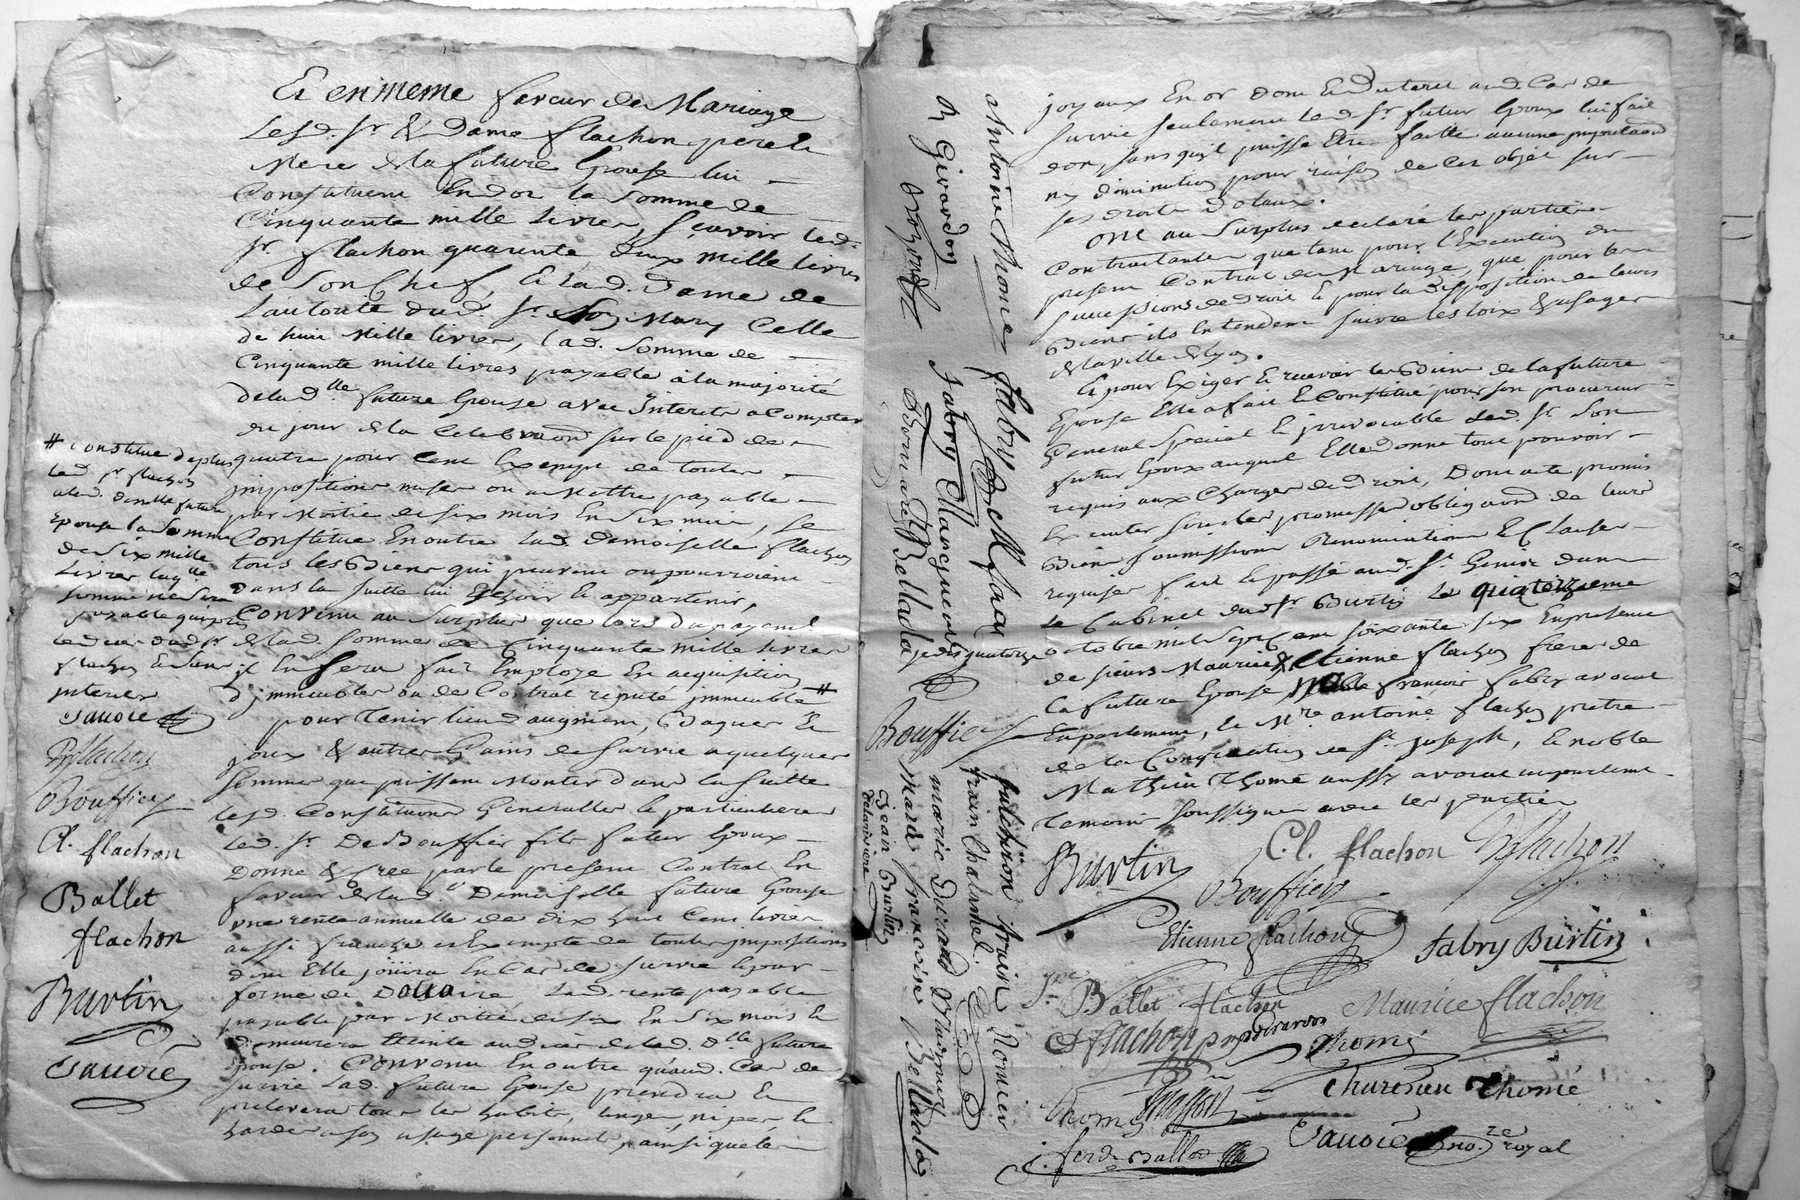 Et en meme faveur de Mariage
Lesd. Sr & Dame flachon pere &
Mere de la future Epouse lui
Constituent En dot la Somme de
Cinquante mille Livres, Sçavoir led.
Sr. flachon quarante deux mille livres
de Son Chef, Et lad. Dame de
L'autorité dud. Sr. Son Mary Celle
de huit Mille livres, lad. Somme de
Cinquante mille livres payable à la majorité
de lad. dlle future Epouse avec Interets a Compter
du jour de la Celebration sur le pied de
quatre pour Cent Exempt de toutes
impositions mises ou a Mettre payable
par Moitié de Six mois En Six mois, Se
Constitue En outre lad. Demoiselle flachon
tous les Biens qui peuvent ou pourroient
dans la Suitte lui Echoir & appartenir,
Convenu au Surplus que lors du payemt.
de lad. Somme de Cinquante mille livres
il En Sera fait Employ En acquisition
d'immeubles ou de Contrat reputé immeuble #
pour Tenir lieu d'augment, Bagues &
joux & autres Gains de Survie a quelques
Sommes que puissent Monter dans la Suitte
lesd. Constitutions Generalles & particulieres
led. Sr. De Bouffier fils futur Epoux
Donne & Crée par le present Contrat En
faveur de lad. Demoiselle future Epouse
une rente annuelle de dix huit Cent livres
aussi franche et Exempte de toutes impositions
dont Elle joüira En Cas de Survie & pour
forme de Doüaire, lad. rente payable
payable par Moitié de Six En Six mois &
demeurera Eteinte au déces de lad. Dlle future
Epouse. Convenu En outre qu'aud. Cas de
Survie lad. future Epouse prendra &
prelevera tous les habits, linges, nipes, &
hardes a Son usage personnel, ainsi que les
# Constitue de plus
led. Sr flachon
a lad. Demlle future
Epouse la Somme
de Six mille
Livres laqlle
Somme ne Sera
payable qu'apres
le deces dud Sr
flachon Et Sans
interets
Sauvie
Bouffier
Cl. flachon
Ballet
flachon
Burtin
Sauvie
R Girardon
Antoine Thomé
fabry
fabry Marquemont
Bonnard Bellada
je dis quatorze
Bouffier
fulchiron frain Romieu
frain Chalamel
marie Durand
mara françoise Belladola
Jean Burtin
joyaux En or dont Et du tout aud. Cas de
Survie Seulement led. Sr. futur Epoux lui fait
don, Sans qu'il puisse Etre faitte aucune imputation
ny diminution pour raison de Cet objet sur
Ses droits dotaux.
ont au Surplus declaré les parties
Contractantes que tant pour l'Execution du
present Contrat de Mariage, que pour les
Successions de droit & pour la disposition de leurs
Biens ils Entendent Suivre les Loix & usages
de la ville de Lyon.
Et pour Exiger & recevoir les Biens de la future
Epouse Elle a fait & Constitué pour Son procureur
General Special & irrevocable led. Sr. Son
futur Epoux auquel Elle donne tout pouvoir
requis aux Charges de Droit, Dont acte promis
Executer Sous les promesses obligations de leurs
Biens Soumissions Renonciations & Clauses
requises fait & passé aud. St. Genis dans
le Cabinet dud Sr Burtin Le quatorzieme
octobre mil Sept Cent Soixante Six En presence
de Sieurs Maurice & Etienne flachon freres de
la future Epouse, noble françois fabry avocat
En parlement, de Mre. antoine flachon pretre
de la Congregation de St. Joseph, & noble
Mathieu Thomé aussy avocat en parlement
Temoins Soussignés avec les parties
Burtin
C.l. flachon
Bouffier
Etienne flachon
fabry Burtin
Ballet flachon
Maurice flachon
flachon
Girardon
Thomé
Thomé
Chussieu Thomé
Sauvie
nore. royal